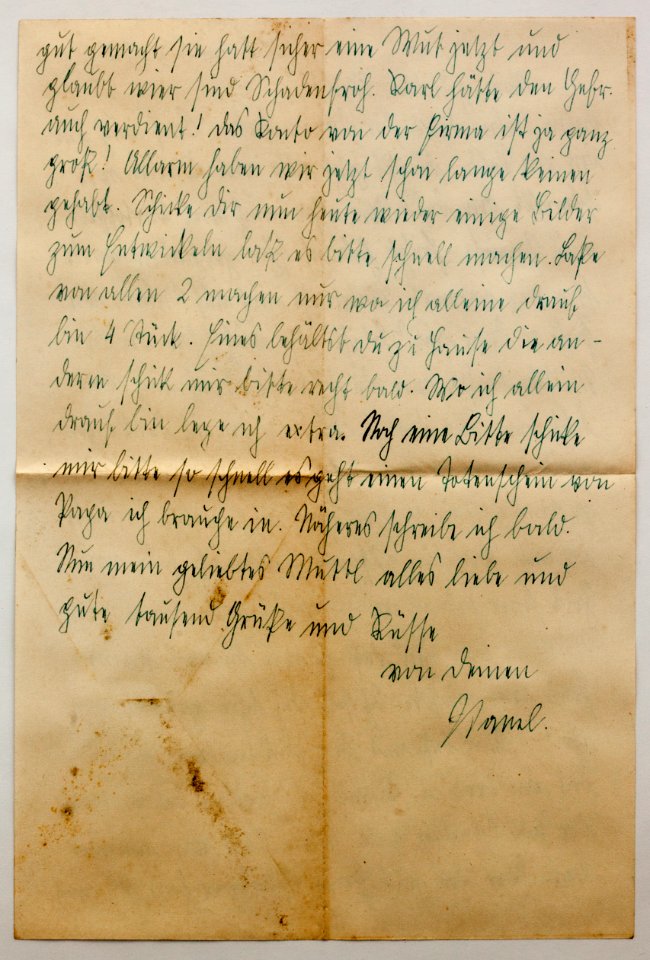 gut gemacht sie hatt sicher eine Wut jetzt und
glaubt wier sind Schadenfroh. Karl hätte den Gefr.
auch verdient! das Konto von der Firma ist ja ganz
groß! Allarm haben wir jetzt schon lange keinen
gehabt. Schicke dir nun heute wieder einige Bilder
zum Entwickeln laß es bitte schnell machen. Laße
von allen 2 machen nur wo ich alleine drauf
bin 4 Stück. Eines behältst du zu Hause die an-
deren schik mir bitte recht bald. Wo ich allein
drauf bin lege ich extra. Noch eine Bitte schicke
mir bitte so schnell es geht einen Totenschein von
Papa ich brauche in. Näheres schreibe ich bald.
Nun mein geliebtes Muttl alles liebe und
gute tausend Grüße und Küsse
von deinen